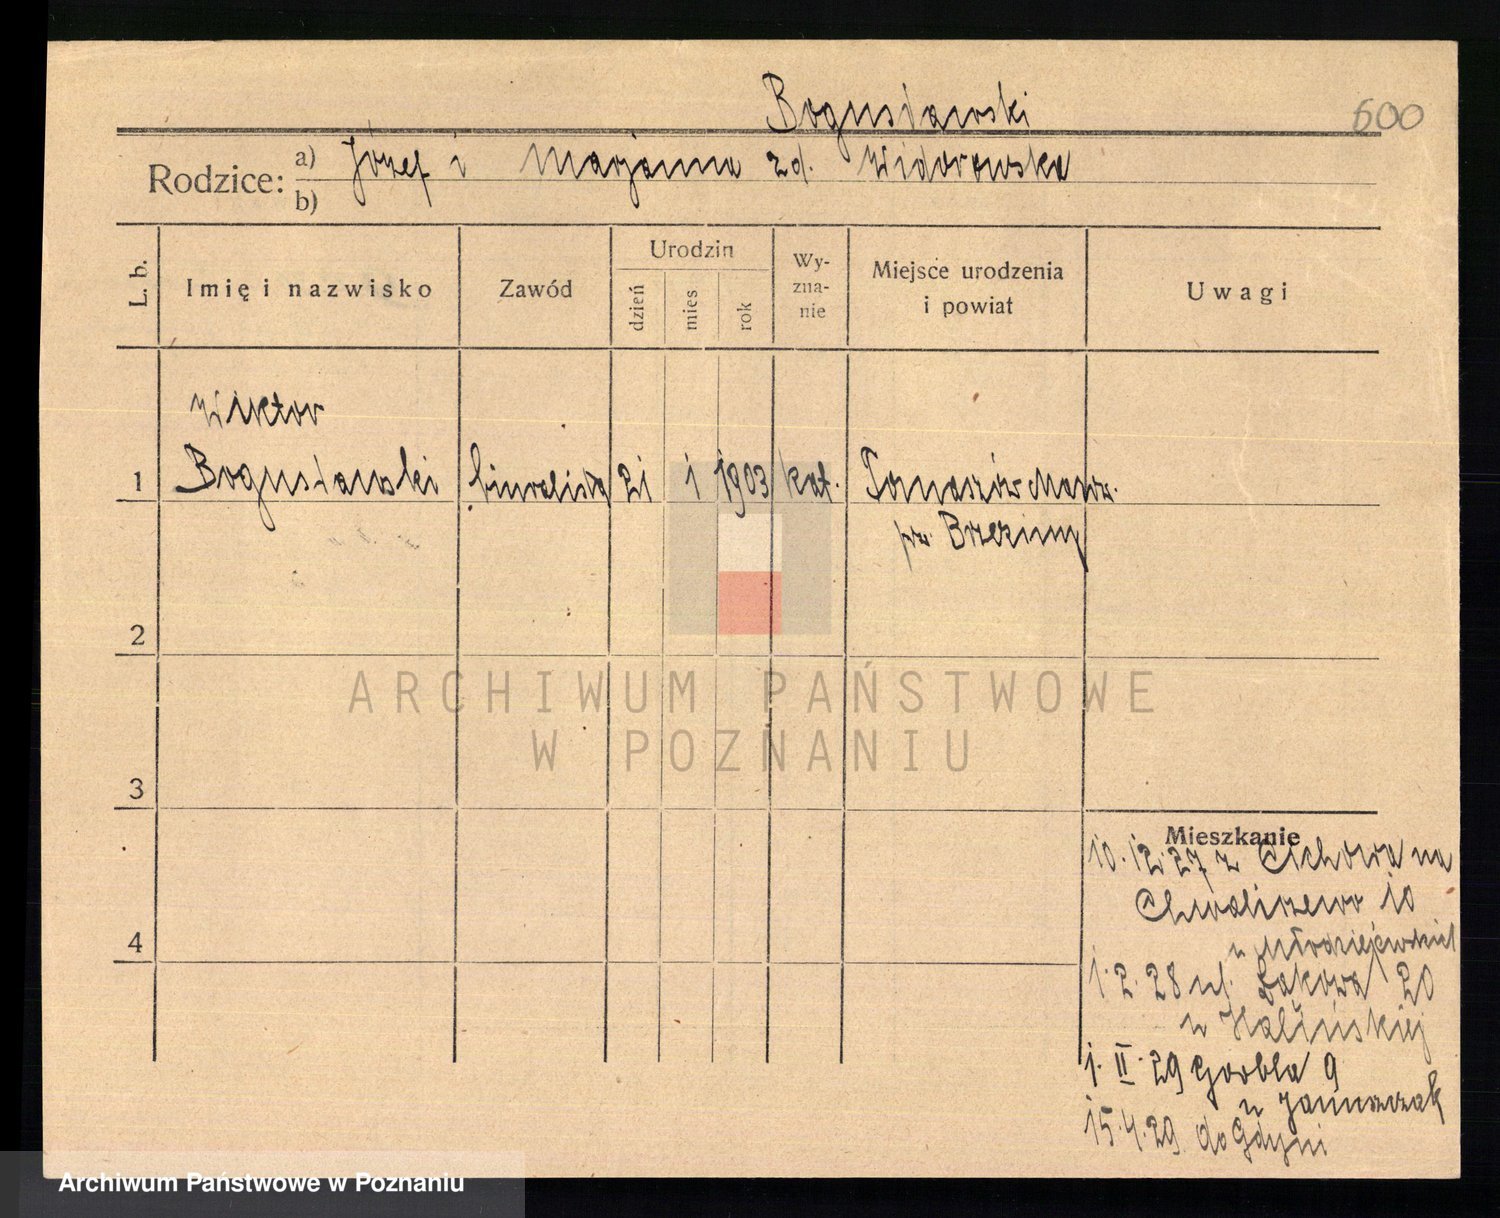 Bogusławski
600
Rodzice: a) Józef i Marjanna zd. Widorowska
b)
L. b.
Imię i nazwisko
Zawód
Urodzin
dzień
mies
rok
Wy-
zna-
nie
Miejsce urodzenia
i powiat
Uwagi
Wiktor
1 Bogusławski biuralista 21 1 1903 kat. Tomaszów Mazow.
pow. Brzeziny
2
3
4
ARCHIWUM PAŃSTWOWE
W POZNANIU
Mieszkanie
10.12.27 z Cichowa na
Chwaliszewo 10
u Młodziejewskich
1.2.28 ul. Łąkowa 20
u Kalińskiej
1.II.29 Garbla 9
u Januszczak
15.4.29 do Gdyni
Archiwum Państwowe w Poznaniu